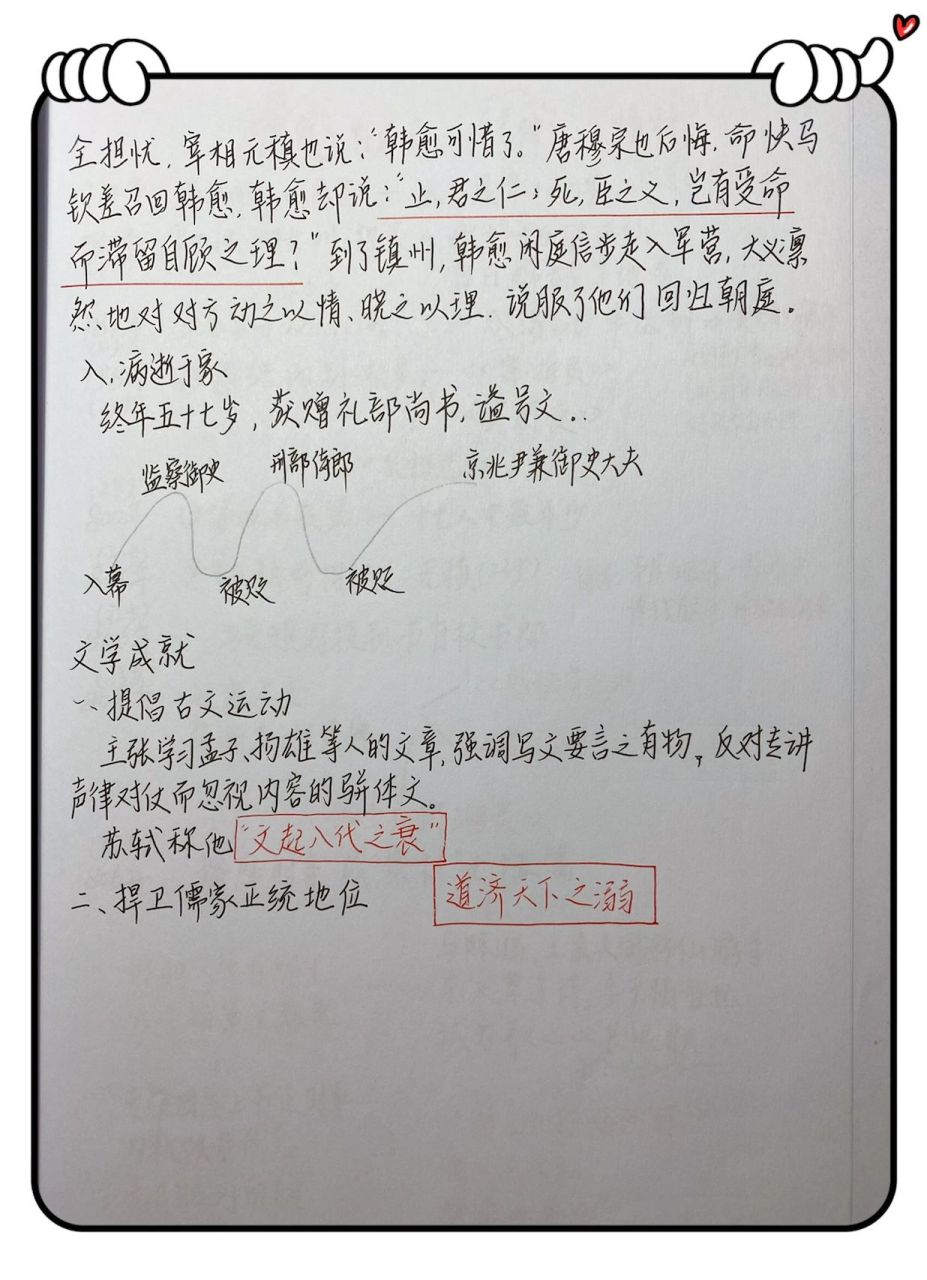 全担忧，宰相元稹也说：“韩愈可惜了。”唐穆宗也后悔，命快马
钦差召回韩愈，韩愈却说：“止，君之仁；死，臣之义，岂有受命
而滞留自顾之理？”到了镇州，韩愈闲庭信步走入军营，大义凛
然地对对方动之以情、晓之以理．说服了他们回归朝庭。
八，病逝于家
终年五十七岁，获赠礼部尚书，谥号文．.
监察御史 刑部侍郎 京兆尹兼御史大夫
入幕 被贬 被贬
文学成就
一、提倡古文运动
主张学习孟子、扬雄等人的文章，强调写文要言之有物，反对专讲
声律对仗而忽视内容的骈体文。
苏轼称他“文起八代之衰”
二、捍卫儒家正统地位 道济天下之溺